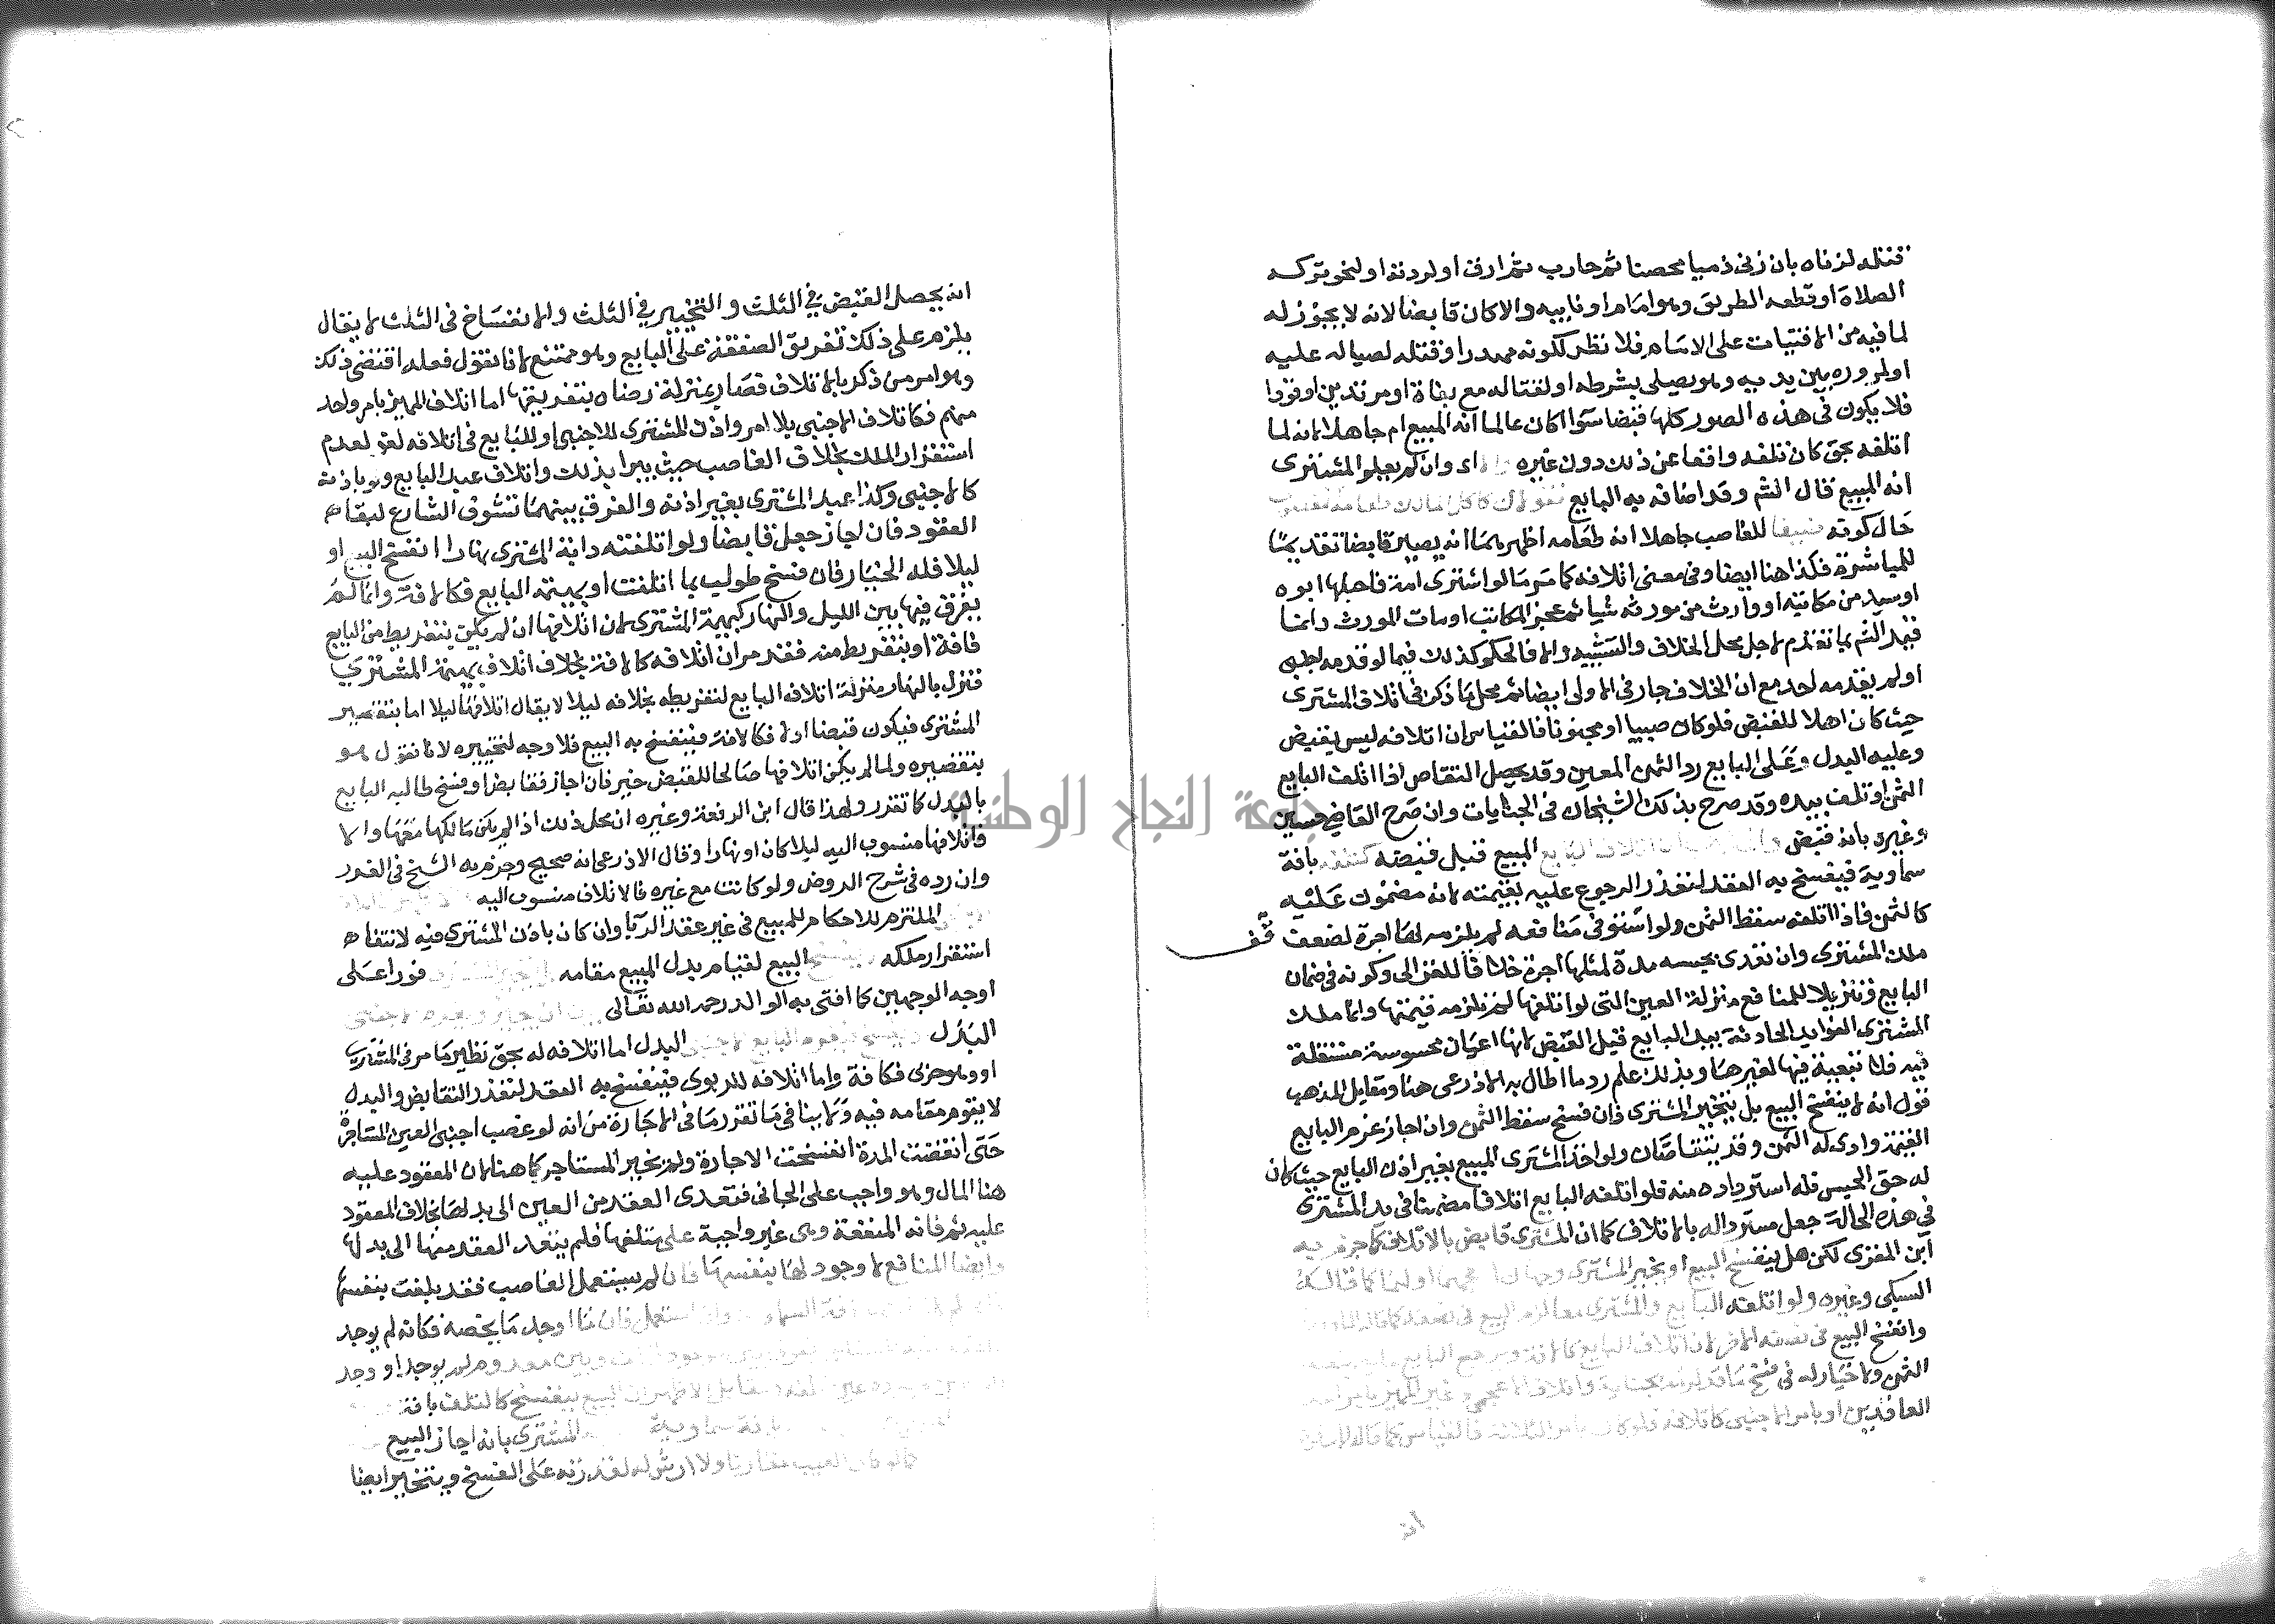 قتله لزناه بان زنى ذميا محصنا ثم حارب ثم ارق او لردته او لنحو تركه
الصلاة او قطعه الطريق وهو امام او نايبه والا كان قابضا لانه لا يجوز له
لما فيه من الافتيات على الامام فلا نظر لكونه مهدرا وقتله لصياله عليه
او لمروره بين يديه وهو يصلي بشرطه او لقتاله مع بغاة او مرتدين او قودا
فلا يكون في هذه الصور كلها قبضا سوا اكان عالما انه المبيع ام جاهلا لانه لما
اتلفه بحق كان تلفه واقعا عن ذلك دون غيره وان لم يعلم المشترى
انه المبيع قال الشم وقد اضافه به البايع كاكل المالك طعامه
حال كونه ضيفا للغاصب جاهلا انه طعامه اظهرهما انه يصير قابضا تقديما
للمباشرة فكذا هنا ايضا وفي معنى اتلافه كما مر ما لو اشترى امة فاحبلها ابوه
او سيد من مكاتبه او وارث من مورثه شيا ثم عجز المكاتب او مات المورث وانما
قيد الشم بما تقدم لاجل محل الخلاف والتشبيه والا فالحكم كذلك فيما لو قدمه اجنبي
او لم يقدمه احد مع ان الخلاف جار في الاولى ايضا ثم محل ما ذكر في اتلاف المشترى
حيث كان اهلا للقبض فلو كان صبيا او مجنونا فالقياس ان اتلافه ليس بقبض
وعليه البدل وعلى البايع رد الثمن المعين وقد يحصل التقاص اذا اتلف البايع
الثمن او تلف بيده وقد صرح بذلك الشيخان في الجنايات وان صرح القاضي حسين
وغيره بانه قبض اتلاف البايع المبيع قبل قبضه كتلفه بافة
سماوية فينفسخ به العقد لتعذر الرجوع عليه بقيمته لانه مضمون عليه
كالثمن فاذا اتلفه سقط الثمن ولو استوفى منافعه لم يلزمه لها اجرة لضعف قف
ملك المشترى وان تعدى بحبسه مدة لمثلها اجرة خلافا للغزالى وكونه في ضمان
البايع وتنزيلا للمنافع منزلة العين التي لو اتلفها لم تلزمه قيمتها وانما ملك
المشترى الفوايد الحادثة بيد البايع قبل القبض لانها اعيان محسوسة مستقلة
فيه فلا تبعية فيها لغيرها وبذلك علم رد ما اطال به الاذرعى هنا ومقابل المذهب
قول انه لا ينفسخ البيع بل يتخير المشترى فان فسخ سقط الثمن وان اجاز غرم البايع
القيمة وادى له الثمن وقد يتقاصان ولو اخذ المشترى المبيع بغير اذن البايع حيث كان
له حق الحبس فله استرداده منه فلو اتلفه البايع اتلافا مضمنا في يد المشترى
في هذه الحالة جعل مستردا له بالاتلاف كما ان المشترى قابض بالاتلاف كما جزم به
ابن المقرى لكن هل ينفسخ البيع او يخير المشترى وجهان اولهما كما قاله
السبكى وغيره ولو اتلفه البايع والمشترى معا لزم البيع في نصفه كما قاله
وانفسخ البيع في نصفه الاخر لان اتلاف البايع كالافة ويرجع البايع
الثمن ولا خيار له في فسخ ما قد لزمه بجنايته واتلاف الاعجمي وغير المميز بامر احد
العاقدين او بامر الاجنبي كاتلافه فلو كان بامر الثلاثة فالقياس كما قاله الاسنوى
ان
انه يحصل القبض في الثلث والتخيير في الثلث والانفساخ في الثلث لا يقال
يلزم على ذلك تفريق الصفقة على البايع وهو ممتنع لانا نقول فعله اقتضى ذلك
وهو امر من ذكر بالاتلاف فصار بمنزلة رضاه بتفريقها اما اتلاف المميز بامر واحد
منهم فكاتلاف الاجنبي بلا امر واذن المشترى للاجنبي او للبايع في اتلافه لغو لعدم
استقرار الملك بخلاف الغاصب حيث يبرا بذلك واتلاف عبد البايع ولو باذنه
كالاجنبي وكذا عبد المشترى بغير اذنه والفرق بينهما تشوف الشارع لبقاء
العقود فان اجاز جعل قابضا ولو اتلفته دابة المشترى نهارا انفسخ البيع او
ليلا فله الخيار فان فسخ طولب بما اتلفت او بهيمة البايع فكالافة وانما لم
يفرق فيها بين الليل والنهار كبهيمة المشترى لان اتلافها ان لم يكن بتفريط من البايع
فافة او بتفريط منه فقد مر ان اتلافه كالافة بخلاف اتلاف بهيمة المشتري
فنزل بالنهار منزلة اتلاف البايع لتفريطه بخلافه ليلا لا يقال اتلافها ليلا اما بتقصير
المشترى فيكون قبضا او لا فكالافة فينفسخ به البيع فلا وجه لتخييره لانا نقول هو
بتقصيره ولما لم يكن اتلافها صالحا للقبض خير فان اجاز فقابض او فسخ طالبه البايع
بالبدل كما تقرر ولهذا قال ابن الرفعة وغيره ان محل ذلك اذا لم يكن مالكها معها والا
فاتلافها منسوب اليه ليلا كان او نهارا وقال الاذرعى انه صحيح وجزم به الشيخ في الغرر
وان رده في شرح الروض ولو كانت مع غيره فالاتلاف منسوب اليه
الملتزم للاحكام للمبيع في غير عقد الربا وان كان باذن المشترى فيه لانتفاء
استقرار ملكه البيع لقيام بدل المبيع مقامه فورا على
اوجه الوجهين كما افتى به الوالد رحمه الله تعالى
البدل البايع البدل اما اتلافه له بحق نظير ما مر في المشترى
او وهو حربى فكافة واما اتلافه للربوى فينفسخ به العقد لتعذر التقابض والبدل
لا يقوم مقامه فيه ولا ينافى ما تقرر ما في الاجارة من انه لو غصب اجنبي العين المستاجرة
حتى انقضت المدة انفسخت الاجارة ولم يخير المستاجر كما هنا لان المعقود عليه
هنا المال وهو واجب على الجانى فتعدى العقد من العين الى بدلها بخلاف المعقود
عليه ثم فانه المنفعة وهي غير واجبة على متلفها فلم يتعد العقد منها الى بدلها
وايضا المنافع لا وجود لها بنفسها فان لم يستعمل الغاصب فقد تلفت بنفسها
استعمل فان ما اوجد ما يخصه فكانه لم يوجد
وبين معدوم لم يوجد او وجد
ان البيع ينفسخ كالتلف بافة
بافة سماوية المشترى بانه اجاز البيع
كما لو كان العيب مقارنا ولا ارش له لقدرته على الفسخ ويتخير ايضا
جامعة النجاح الوطنية